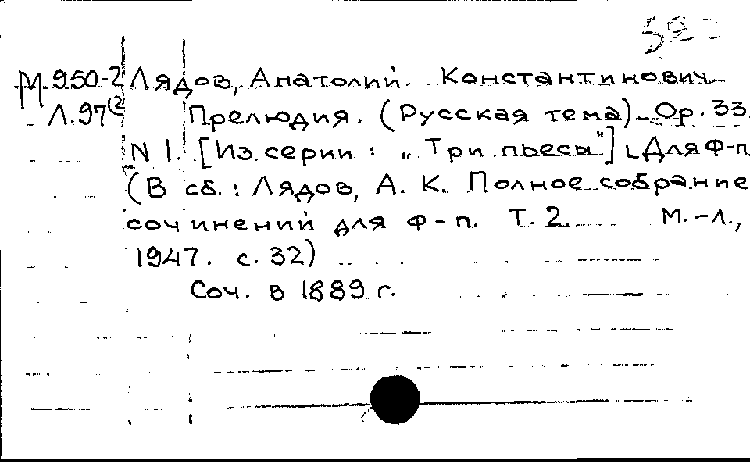 М.950-2 Лядов, Анатолий Константинович
Л.97(2 Прелюдия. (Русская тема). Ор. 33.
N 1. [Из серии: „Три пьесы"]. Для ф-п.
(В сб.: Лядов, А. К. Полное собрание
сочинений для ф-п. Т. 2. М.-Л.,
1947. с. 32)
Соч. в 1889 г.